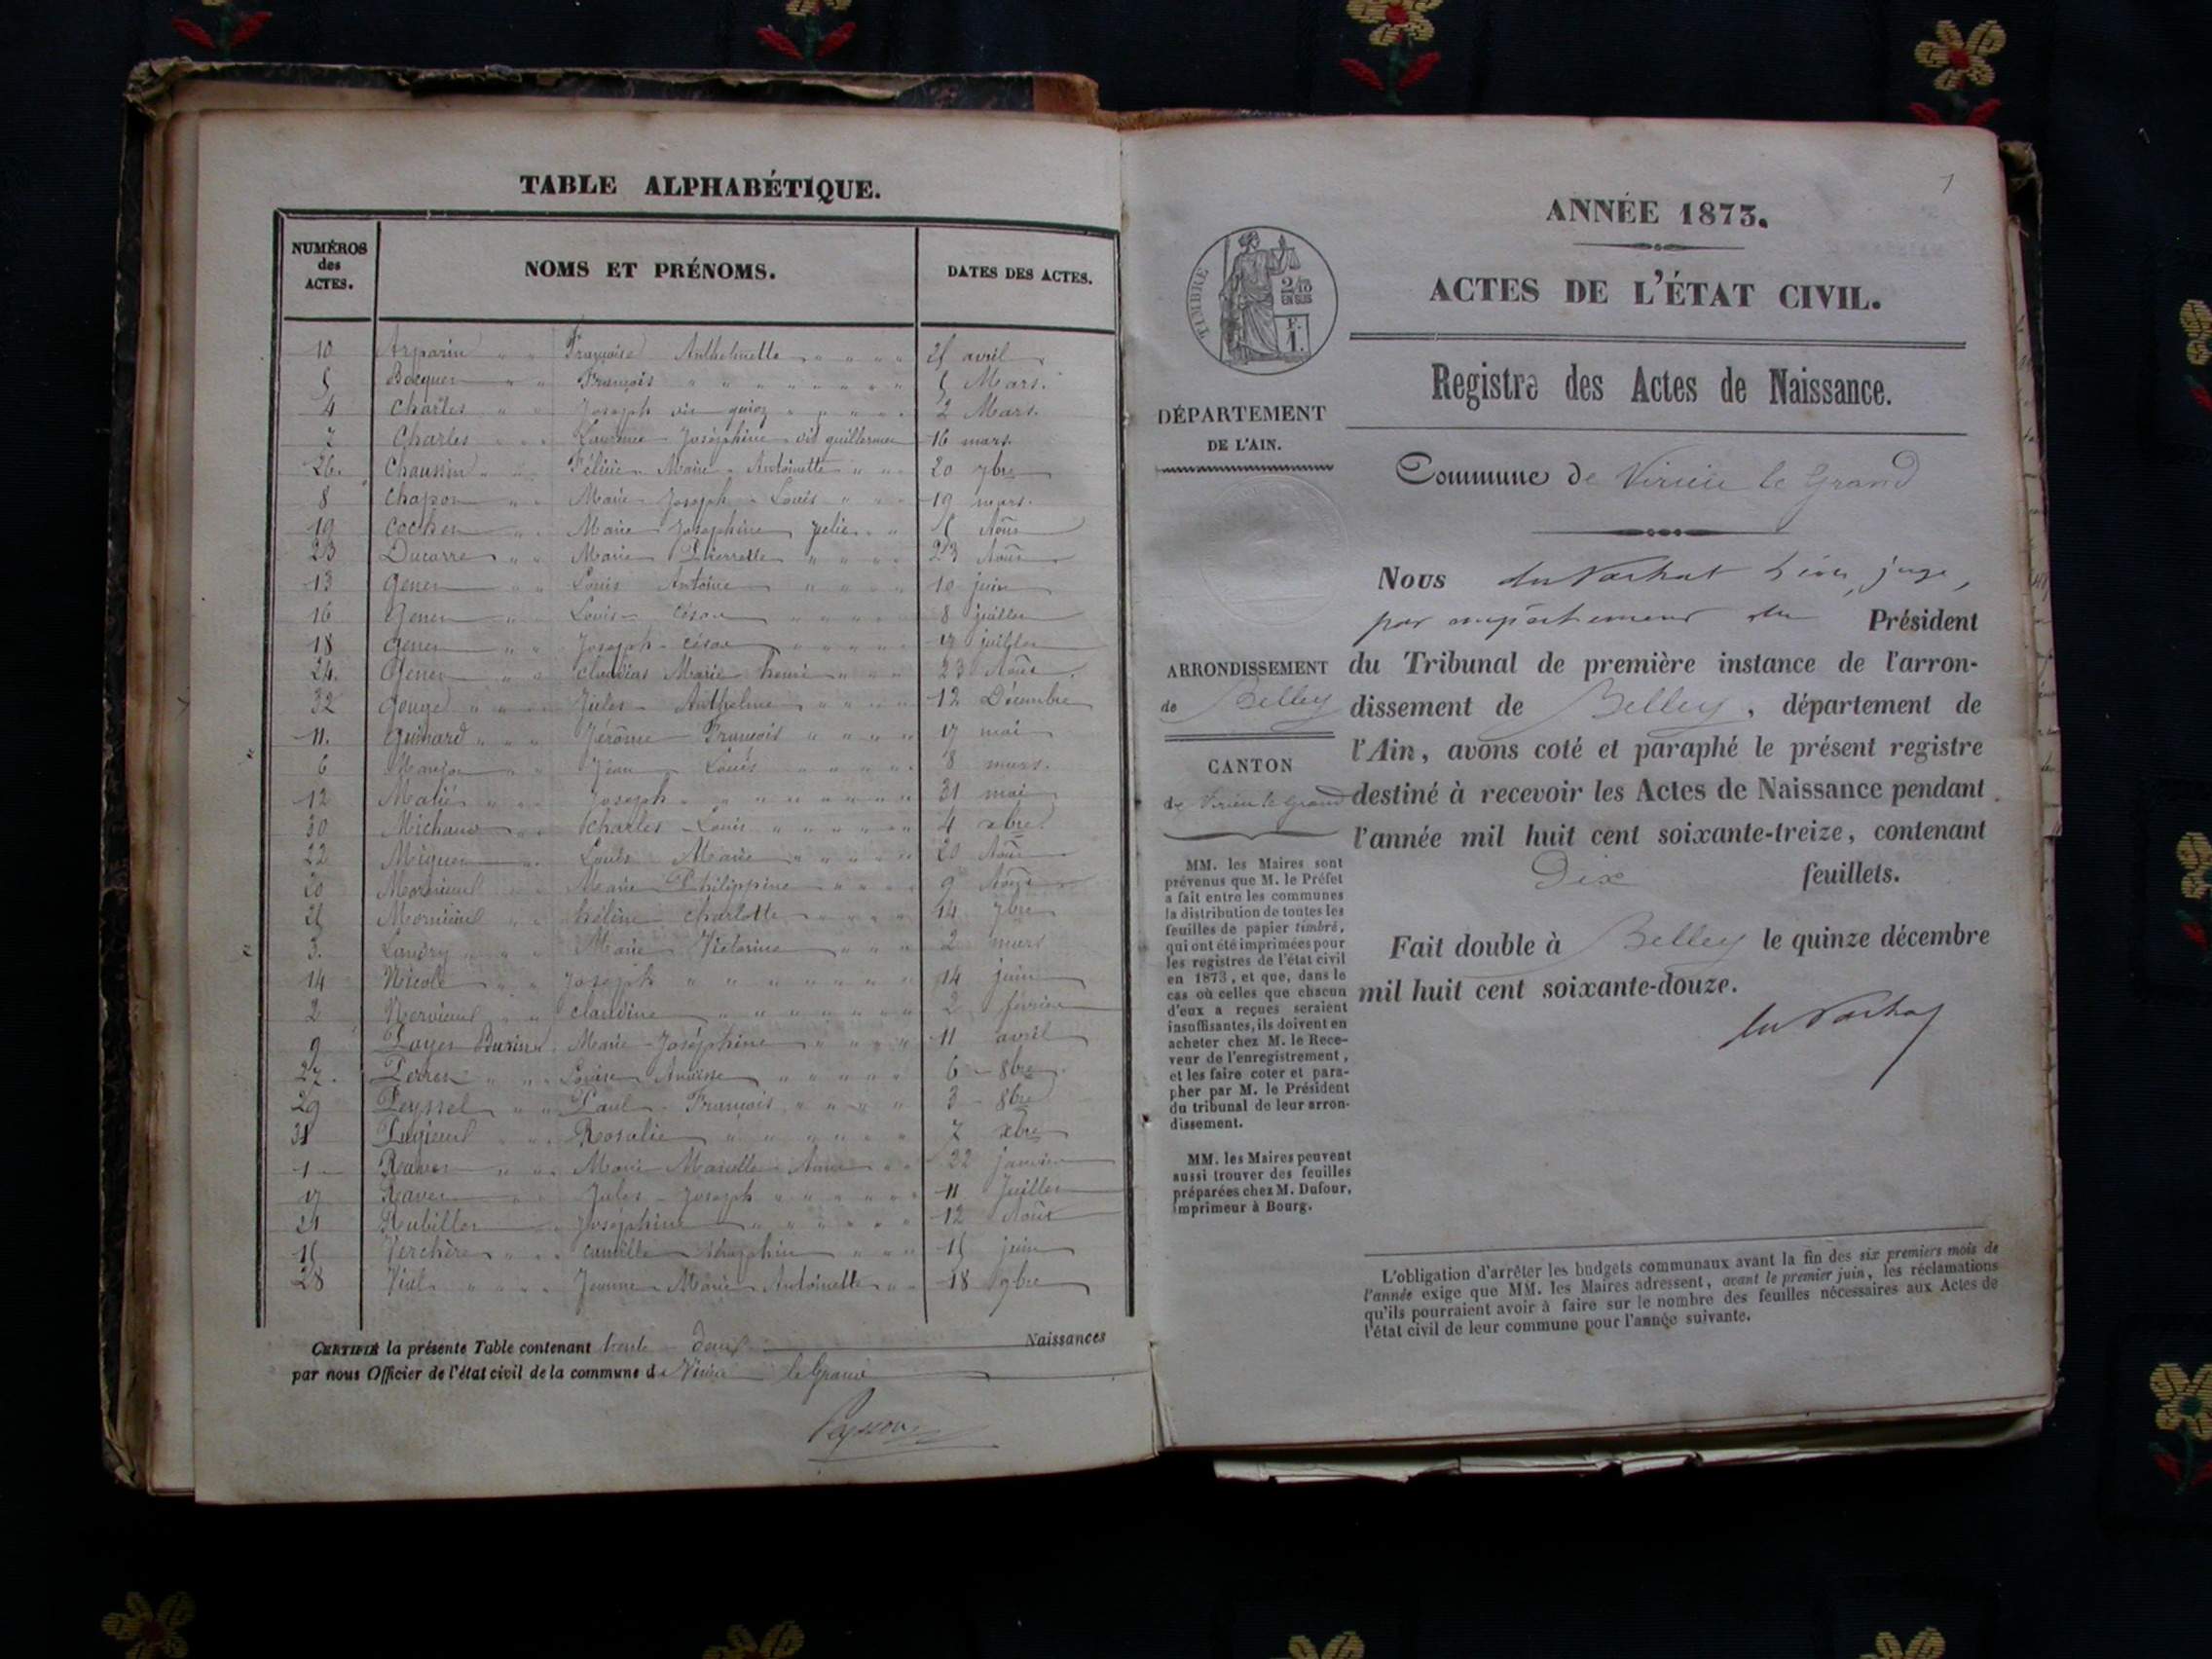 TABLE ALPHABÉTIQUE.
NUMÉROS
des
ACTES.
NOMS ET PRÉNOMS.
DATES DES ACTES.
10 Françoise Anthelmette 25 avril
5 François 5 Mars.
4 Charles Joseph 2 Mars.
7 Charles Joséphine 16 mars.
26. Chaussin Félicie Marie Antoinette 20 7bre
8 Chapon Marie Joseph Louis 19 mars.
19 Cochet Marie Joséphine 15 Août
23 Ducarre Marie Pierrette 23 Août
13 Genet Louis Antoine 10 juin
16 Genet Louis César 8 juillet
18 Genet Joseph César 17 juillet
24. Genet Claudius Marie henri 23 Août
32 Gouget Jules Anthelme 12 Décembre
11. Guinard Jérôme François 17 mai
6 Jean Louis 8 mars.
12 Joseph 31 mai
30 Michaud Charles Louis 4 xbre
22 Miguet Louis Marie 20 Août
20 Marie Philippine 9 Août
25 hélène charlotte 14 7bre
3. Landry Marie Victorine 2 mars
14 Nicole Joseph 14 juin
2 claudine 2 février
9 Marie Joséphine 11 avril
27. Louise 6 8bre
29 Peyssel Paul François 3 8bre
31 Rosalie 7 xbre
1 Marie 22 janvier
17 Ravet Jules Joseph 11 Juillet
21 Joséphine 12 Août
15 Verchère camille 15 juin
28 Vial Jeanne Marie Antoinette 18 9bre
CERTIFIÉ la présente Table contenant trente deux Naissances
par nous Officier de l'état civil de la commune de Virieu le Grand
1
ANNÉE 1873.
ACTES DE L'ÉTAT CIVIL.
TIMBRE
2/10
EN SUS
F.
1.
Registre des Actes de Naissance.
DÉPARTEMENT
DE L'AIN.
Commune de Virieu le Grand
Nous juge,
par empêchement du Président
ARRONDISSEMENT
de Belley
du Tribunal de première instance de l'arron-
dissement de Belley, département de
l'Ain, avons coté et paraphé le présent registre
CANTON
de Virieu le grand
destiné à recevoir les Actes de Naissance pendant
l'année mil huit cent soixante-treize, contenant
Dix feuillets.
Fait double à Belley le quinze décembre
mil huit cent soixante-douze.
MM. les Maires sont
prévenus que M. le Préfet
a fait entre les communes
la distribution de toutes les
feuilles de papier timbré,
qui ont été imprimées pour
les registres de l'état civil
en 1873, et que, dans le
cas où celles que chacun
d'eux a reçues seraient
insuffisantes, ils doivent en
acheter chez M. le Rece-
veur de l'enregistrement,
et les faire coter et para-
pher par M. le Président
du tribunal de leur arron-
dissement.
MM. les Maires peuvent
aussi trouver des feuilles
préparées chez M. Dufour,
imprimeur à Bourg.
L'obligation d'arrêter les budgets communaux avant la fin des six premiers mois de
l'année exige que MM. les Maires adressent, avant le premier juin, les réclamations
qu'ils pourraient avoir à faire sur le nombre des feuilles nécessaires aux Actes de
l'état civil de leur commune pour l'année suivante.